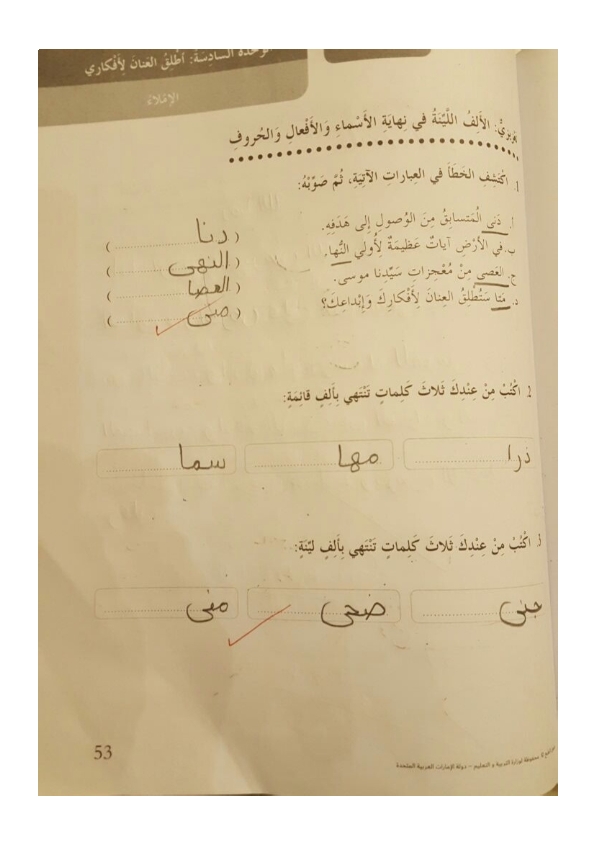 الوحدة السادسة: أطلق العنان لأفكاري
الإملاء
الأَلِفُ اللَّيِّنَةُ في نِهايَةِ الأَسْماءِ وَالأَفْعالِ وَالحُروفِ
1. اكْتَشِفِ الخَطَأَ في العِباراتِ الآتِيَةِ، ثُمَّ صَوِّبْهُ:
أ. دَنى المُتَسابِقُ مِنَ الوُصولِ إِلى هَدَفِهِ. ( دنا )
ب. في الأَرْضِ آياتٌ عَظيمَةٌ لِأُولي النُّها. ( النهى )
ج. العَصى مِنْ مُعْجِزاتِ سَيِّدِنا موسى. ( العصا )
د. مَتا سَتُطْلِقُ العِنانَ لِأَفْكارِكَ وَإِبْداعِكَ؟ ( متى )
2. اكْتُبْ مِنْ عِنْدِكَ ثَلاثَ كَلِماتٍ تَنْتَهي بِأَلِفٍ قائِمَةٍ:
ذرا مها سما
3. اكْتُبْ مِنْ عِنْدِكَ ثَلاثَ كَلِماتٍ تَنْتَهي بِأَلِفٍ ليّنَةٍ:
جنى ضحى منى
53
محفوظة لوزارة التربية و التعليم - دولة الإمارات العربية المتحدة